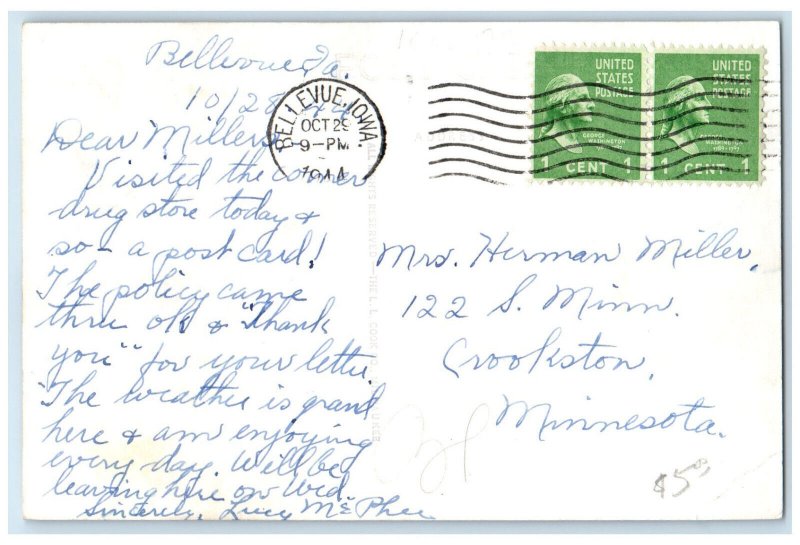 Bellevue, Ia.
10/28
Dear Millers
Visited the corner
drug store today &
so - a post card!
The policy came
thru ok & "Thank
you" for your letter.
The weather is grand
here & am enjoying
every day. Will be
leaving here on Wed.
Sincerely, Lucy McPhee
BELLEVUE, IOWA.
OCT 29
9-PM
1944
UNITED
STATES
POSTAGE
GEORGE
WASHINGTON
1 CENT 1
UNITED
STATES
POSTAGE
GEORGE
WASHINGTON
1789-1797
1 CENT 1
Mrs. Herman Miller,
122 S. Minn.
Crookston,
Minnesota.
$5.00